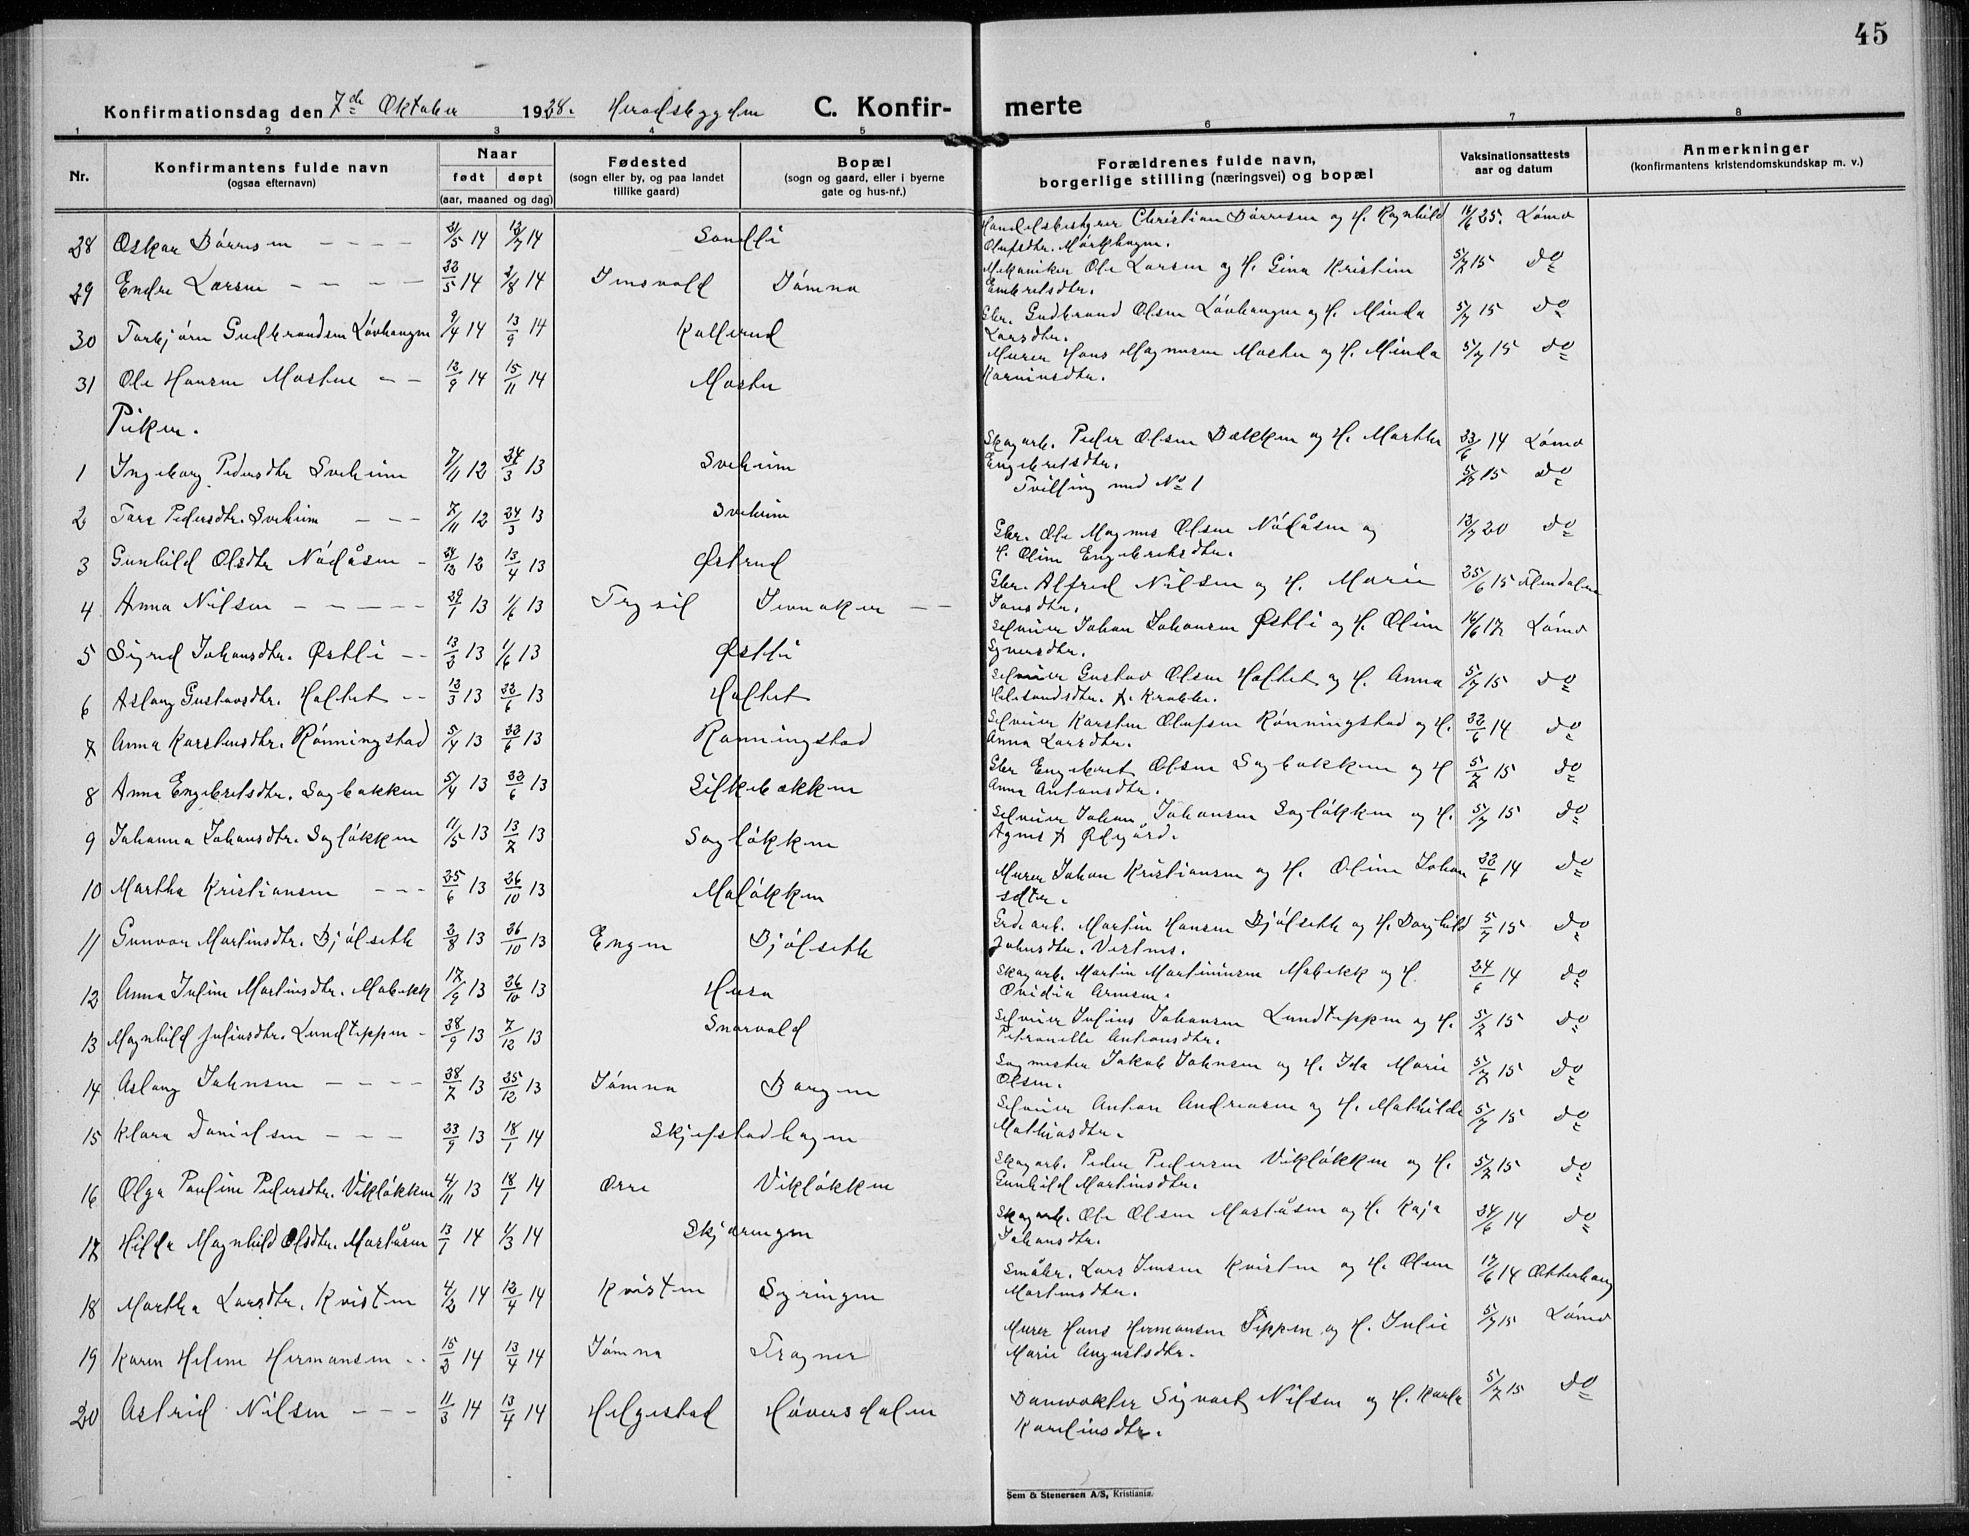 45
Konfirmationsdag den 7de Oktober 1928. Heradsbygden C. Konfirmerte
1 2 3 4 5 6 7 8
Nr. Konfirmantens fulde navn (ogsaa efternavn) Naar født døpt (aar, maaned og dag) Fødested (sogn eller by, og paa landet tillike gaard) Bopæl (sogn og gaard, eller i byerne gate og hus-nr.) Forældrenes fulde navn, borgerlige stilling (næringsvei) og bopæl Vaksinationsattests aar og datum Anmerkninger (konfirmantens kristendomskundskap m. v.)
28 Oskar Børresen 31/5 14 12/7 14 Sandli Handelsbestyrer Christian Børresen og H. Ragnhild Olufsdtr. Mørkhagen. 16/6 25. Lømo
29 Endre Larsen 22/5 14 2/8 14 Imsvold Jømna Mekaniker Ole Larsen og H. Gina Kristine Embretsdtr. 5/7 15 do
30 Torbjørn Gudbrandsen Løvhaugen 9/4 14 13/9 14 Kallerud Gbr. Gudbrand Olsen Løvhaugen og H. Minda Larsdtr. 5/7 15 do
31 Ole Hansen Mostue 12/9 14 15/11 14 Mostu Murer Hans Magnusen Mostu og H. Minda Karninsdtr. 5/7 15 do
Piker.
1 Ingeborg Pedersdtr Sveheim 7/11 12 24/3 13 Sveheim Skogarb. Peder Olsen Bækken og H. Marthe Engebretsdtr. 23/6 14 Lømo
2 Tora Pedersdtr. Sveheim 7/11 12 24/3 13 Sveheim Tvilling med No 1 5/7 15 do
3 Gunhild Olsdtr Nódåsen 24/12 12 13/4 13 Østrud Gbr. Ole Magnus Olsen Nódåsen og H. Oline Engebretsdtr. 13/7 20 do
4 Anna Nilsen 29/1 13 1/6 13 Trysil Jernaker Gbr. Alfred Nilsen og H. Marie Jonsdtr. 25/6 15 Flendalen
5 Sigrid Johansdtr. Østli 13/3 13 1/6 13 Østli Selveier Johan Johansen Østli og H. Oline Syversdtr. 16/6 17 Lømo
6 Aslaug Gustavsdtr. Haltet 13/3 13 22/6 13 Haltet Selveier Gustav Olsen Haltet og H. Anna Helesandsdtr. f. Krabbe. 5/7 15 do
7 Anna Karstensdtr. Rønningstad 5/4 13 22/6 13 Rønningstad Selveier Karsten Olufsen Rønningstad og H. Anna Larsdtr. 22/6 14 do
8 Anna Engebretsdtr. Sagbakken 5/4 13 22/6 13 Silkebækken Gbr Engebret Olsen Sagbakken og H Anna Antonsdtr. 5/7 15 do
9 Johanna Johansdtr. Sagløkken 11/5 13 13/7 13 Sagløkken Selveier Johan Johansen Sagløkken og H. Agnes f. Ødegård. 5/7 15 do
10 Martha Kristiansen 25/6 13 26/10 13 Maløkken Murer Johan Kristiansen og H. Oline Johansdtr. 22/6 14 do
11 Gunvor Martinsdtr. Bjølseth 3/8 13 26/10 13 Engen Bjølseth Grd.arb. Martin Hansen Bjølseth og H. Borghild Johnsdtr. Vestnes. 5/7 15 do
12 Anna Juline Martinsdtr. Mobekk 17/9 13 26/10 13 Husa Skogarb. Martin Martiniusen Mobekk og H. Ovidia Arnesen. 24/6 14 do
13 Magnhild Juliusdtr. Lundtippen 28/9 13 7/12 13 Snarvold Selveier Julius Johansen Lundtippen og H. Petronelle Antonsdtr. 5/7 15 do
14 Aslaug Johnsen 28/7 13 25/12 13 Jømna Borgen Sagmester Jakob Johnsen og H. Ida Marie Olsen. 5/7 15 do
15 Klara Danielsen 23/9 13 18/1 14 Skjefstadhagen Selveier Anton Andreasen og H. Mathilde Mathiasdtr. 5/7 15 do
16 Olga Pauline Pedersdtr. Vikløkken 4/11 13 18/1 14 Orre Vikløkken Skogarb. Peder Pedersen Vikløkken og H. Gunhild Martinsdtr. 5/7 15 do
17 Hilda Magnhild Olsdtr. Mortåsen 13/1 14 1/3 14 Skjæringen Skogarb. Ole Olsen Mortåsen og H. Kaja Johansdtr. 24/6 14 do
18 Martha Larsdtr. Kvisten 4/2 14 12/4 14 Kvisten Søringen Småbr. Lars Jensen Kvisten og H. Oline Martinsdtr. 17/6 14 Otterhaug
19 Karen Helene Hermansen 15/2 14 13/4 14 Jømna Fragner Murer Hans Hermansen Tippen og H. Julie Marie Augustsdtr. 5/7 15 Lømo
20 Astrid Nilsen 11/3 14 13/4 14 Helgestad Høversdalen Banevokter Sigvart Nilsen og H. Karla Karelinsdtr. 5/7 15 do
Sem & Stenersen A/S, Kristiania.